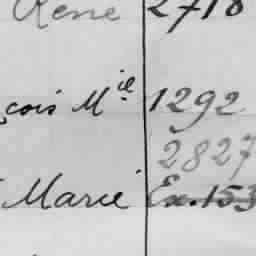 René 2718
çois Mel 1292
2827
Marie Ex. 153